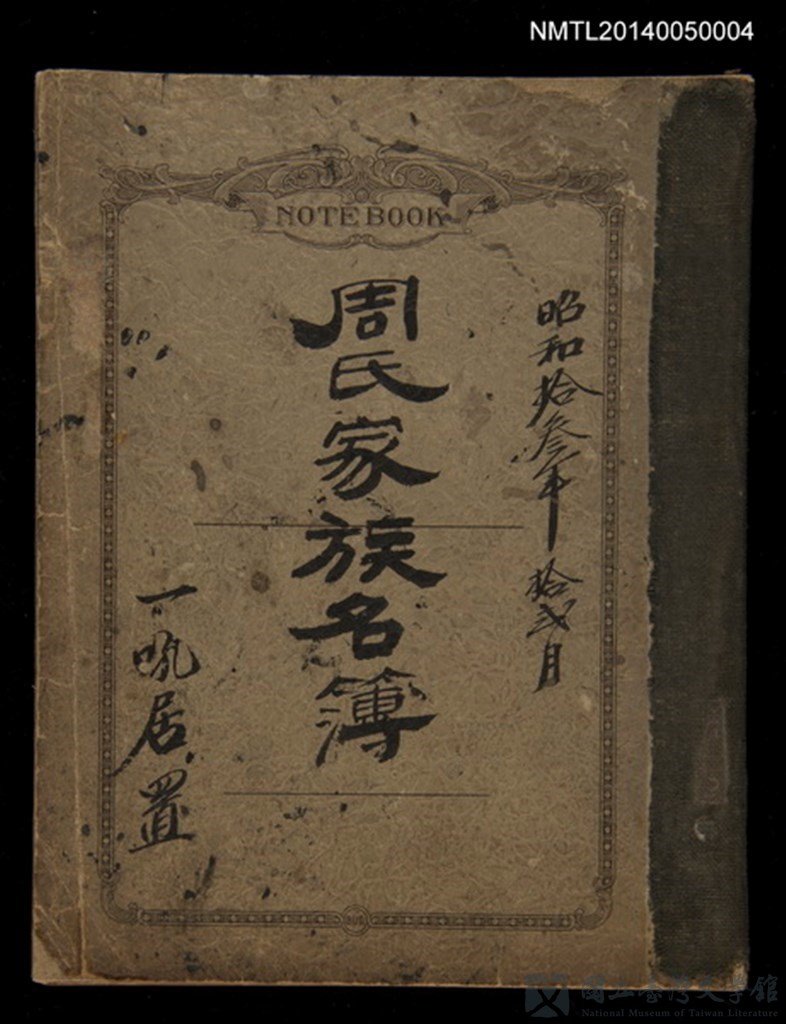 NMTL20140050004
NOTE BOOK
昭和拾叁年 拾弍月
周氏家族名簿
一吼居置
國立臺灣文學館
National Museum of Taiwan Literature